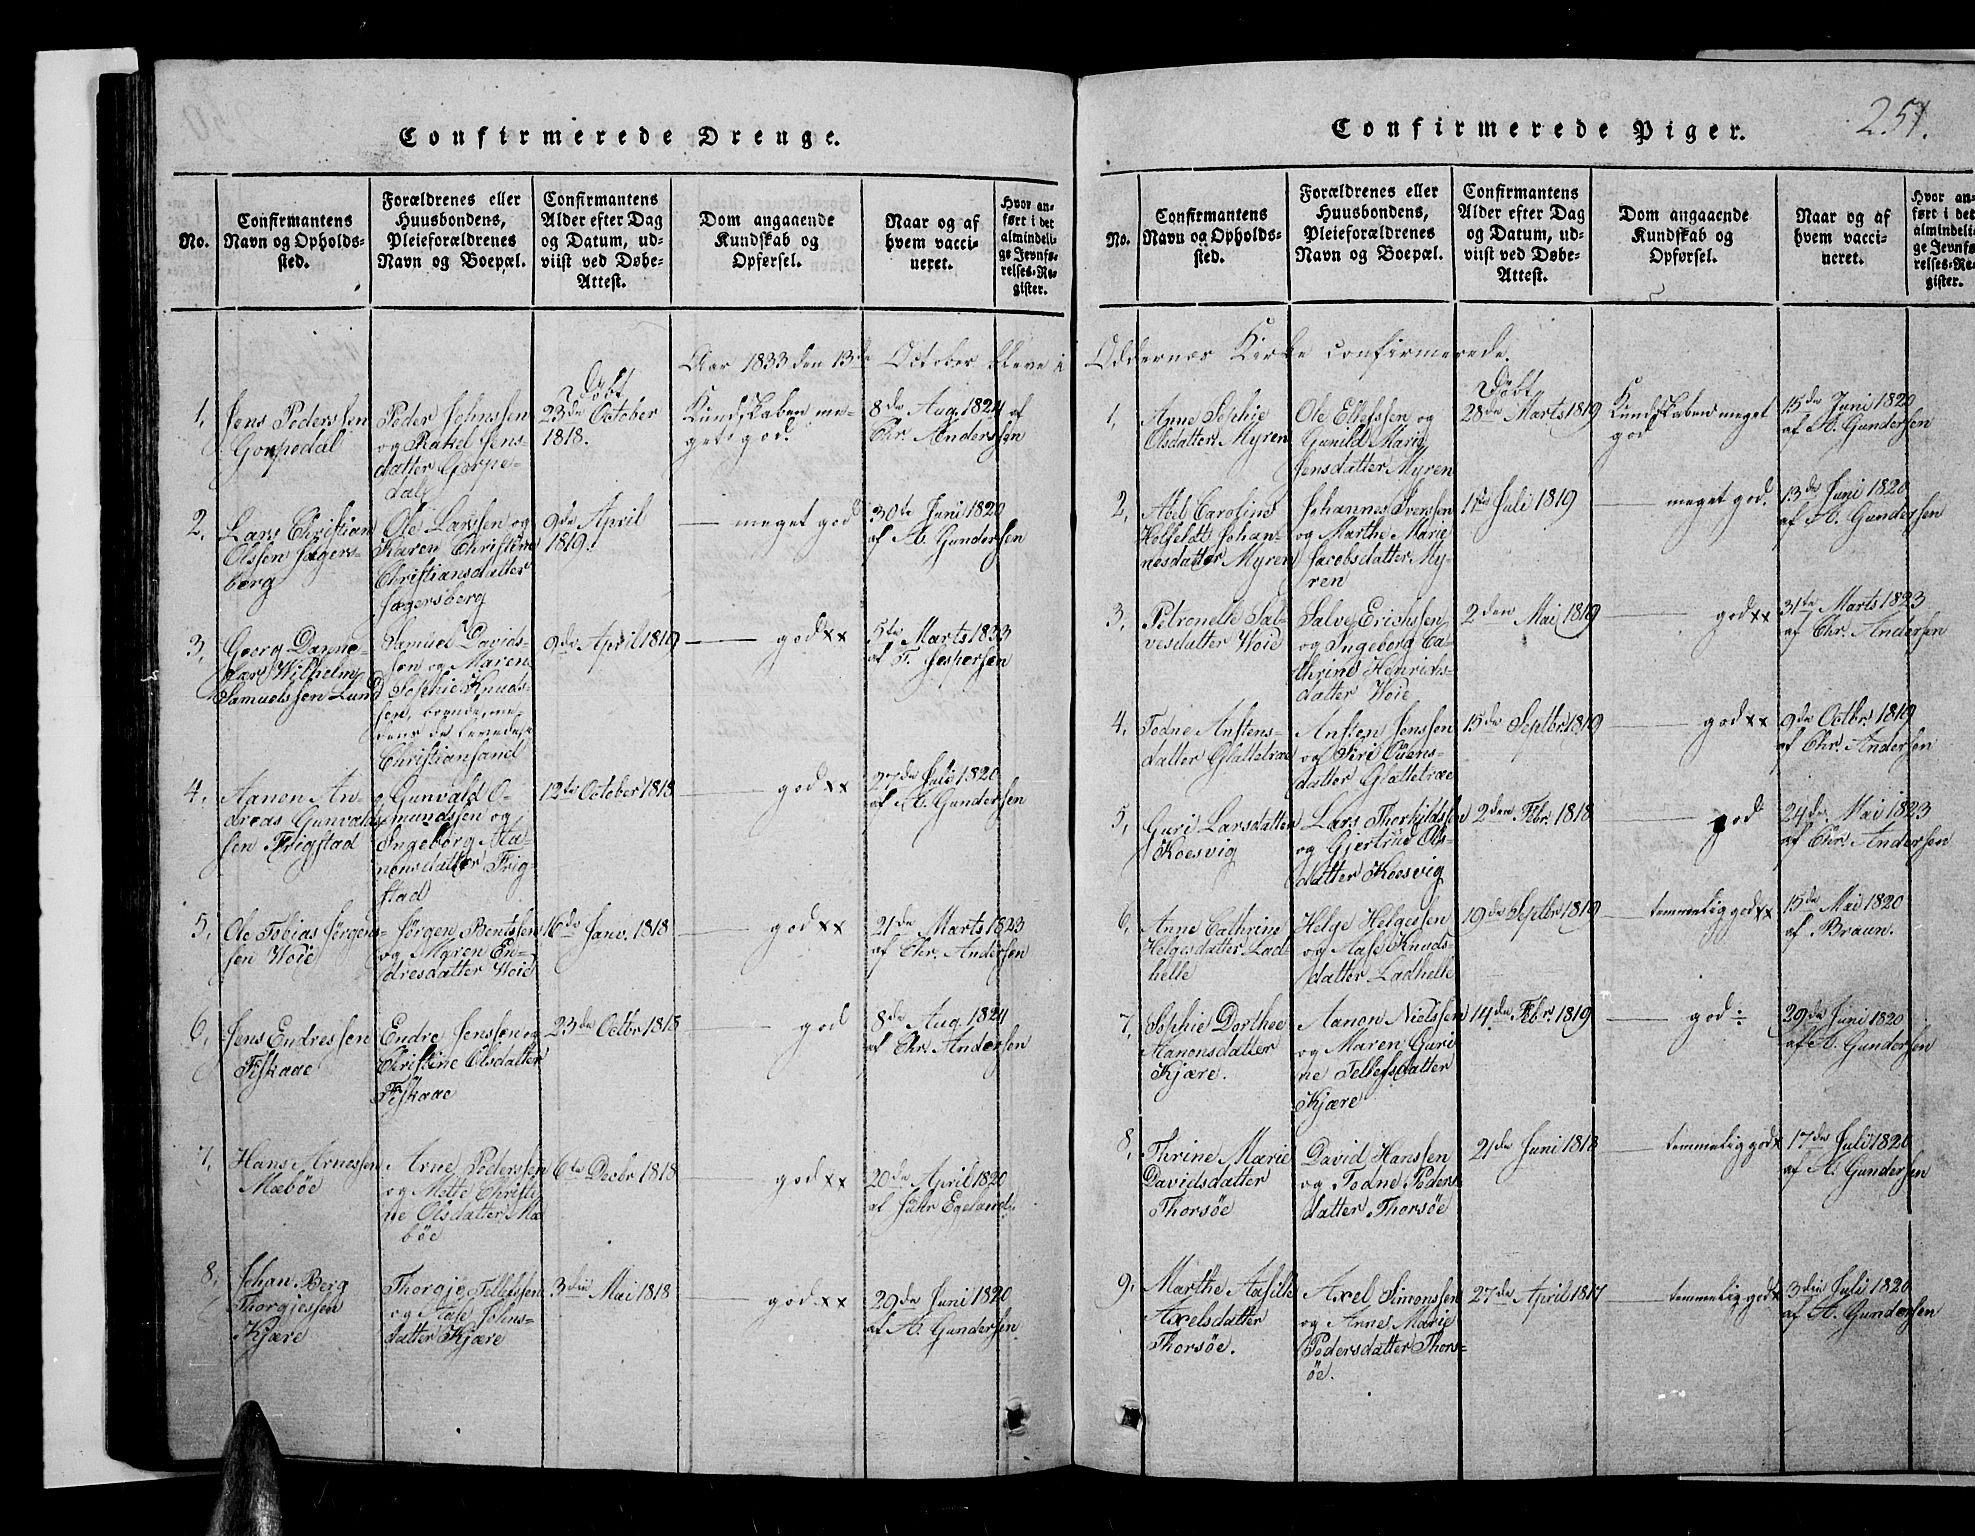 Confirmerede Drenge.
No.
Confirmantens
Navn og Opholds-
sted.
Forældrenes eller
Huusbondens,
Pleieforældrenes
Navn og Boepæl.
Confirmantens
Alder efter Dag
og Datum, ud-
viist ved Døbe-
Attest.
Dom angaaende
Kundskab og
Opførsel.
Naar og af
hvem vacci-
neret.
Hvor an-
ført i det
almindeli-
ge Jevnfø-
relses-Re-
gister.
Aar 1833 den 13de October bleve i
1,
Jens Pederssen
Peder Johnssen
og Rakel Jens-
datter Gorpe-
dal
Døbt
23de October
1818.
Kundskaben me-
get god.
8de Aug. 1824 af
Chr. Anderssen
2,
Lars Christian
Olssen Fagers-
berg
Ole Larssen og
Karen Christine
Christiansdatter
Fagersberg
9de April
1819.
— meget god
30te Juni 1820
af A. Gunderssen
3,
Georg Danne-
Wilhelm
Samuelssen Lund
Samuel Davids-
sen og Maren
Sophie Knuds-
Christiansand
9de April 1819
— god xx
5te Marts 1833
af F. Jespersen
4,
Aanon An-
dreas Gunvalds-
sen Frigstad
Gunvald O-
mundssen og
Ingeborg Aa-
nonsdatter Frig-
stad
12te October 1818
— god xx
27de Juli 1820
af A. Gunderssen
5,
Ole Tobias Jørgens-
sen Woie
Jørgen Bentssen
og Maren En-
dresdatter Woie
16de Janv. 1818
— god xx
21de Marts 1823
af Chr. Anderssen
6,
Jens Endressen
Fiskaae
Endre Jenssen og
Christine Olsdatter
Fiskaae
23de Octbr 1818
— god
8de Aug. 1824
af Chr. Anderssen
7,
Hans Arnessen
Mæbøe
Arne Pederssen
og Mette Christi-
ne Olsdatter Mæ
bøe
6te Decbr 1818
— god xx
20de April 1820
af Egeland.
8,
Johan Berg
Thorgjessen
Kjære
Thorgje Tellefssen
og Aase Johns-
datter Kjære
3die Mai 1818
— god xx
29de Juni 1820
af A. Gunderssen
Confirmerede Piger.
251.
No.
Confirmantens
Navn og Opholds-
sted.
Forældrenes eller
Huusbondens,
Pleieforældrenes
Navn og Boepæl.
Confirmantens
Alder efter Dag
og Datum, ud-
viist ved Døbe-
Attest.
Dom angaaende
Kundskab og
Opførsel.
Naar og af
hvem vacci-
neret.
Hvor an-
ført i det
almindeli-
ge Jevnfø-
relses-Re-
gister.
Oddernæs Kirke confirmerede.
1,
Anne Sophie
Olsdatter Myren
Ole Ellefssen og
Gunild Marie
Jensdatter Myren
Døbt
28de Marts 1819
Kundskaben meget
god
15de Juni 1820
af A. Gunderssen
2,
Abel Caroline
Holfeldt Johan-
nesdatter Myren
Johannes Iverssen
og Marthe Marie
Jacobsdatter My-
ren
11te Juli 1819
— meget god.
13de Juni 1820
af A. Gunderssen
3,
Petronelle Sal-
vesdatter Woie
Salve Erichssen
og Ingeborg Ca-
thrine Henrichs-
datter Woie
2den Mai 1819
— god xx
31te Marts 1823
af Chr. Anderssen
4,
Todne Anstens-
datter Glattetræ
Ansten Jenssen
og Siri Ouens-
datter Glattetræ
15de Septbr. 1819
— god xx
9de Octbr. 1819
af Chr. Anderssen
5,
Guri Larsdatter
Koesvig
Lars Thorkildssen
og Gjertrud Ols-
datter Koesvig
2den Febr. 1818
— god
24de Mai 1823
af Chr. Anderssen
6,
Anne Cathrine
Helgesdatter Lad-
helle
Helge Helgessen
og Aase Knuds
datter Ladhelle
19de Septbr 1819
— temmelig god xx
15de Mai 1820
af Braun.
7,
Sophie Dorthee
Aanonsdatter
Kjære.
Aanon Nielssen
og Maren Guri
ne Tellefsdatter
Kjære
14de Febr. 1819
— god
29de Juni 1820
af A. Gunderssen
8,
Thrine Marie
Davidsdatter
Thorsøe
David Hanssen
og Todne Peders
datter Thorsøe
21de Juni 1818
— temmelig god x
17de Juli 1820
af A. Gunderssen
9,
Marthe Aasille
Axelsdatter
Thorsøe.
Axel Simonssen
og Anne Marie
Pedersdatter Thors-
øe.
27de April 1817
— temmelig god x
3die Juli 1820
af A. Gunderssen